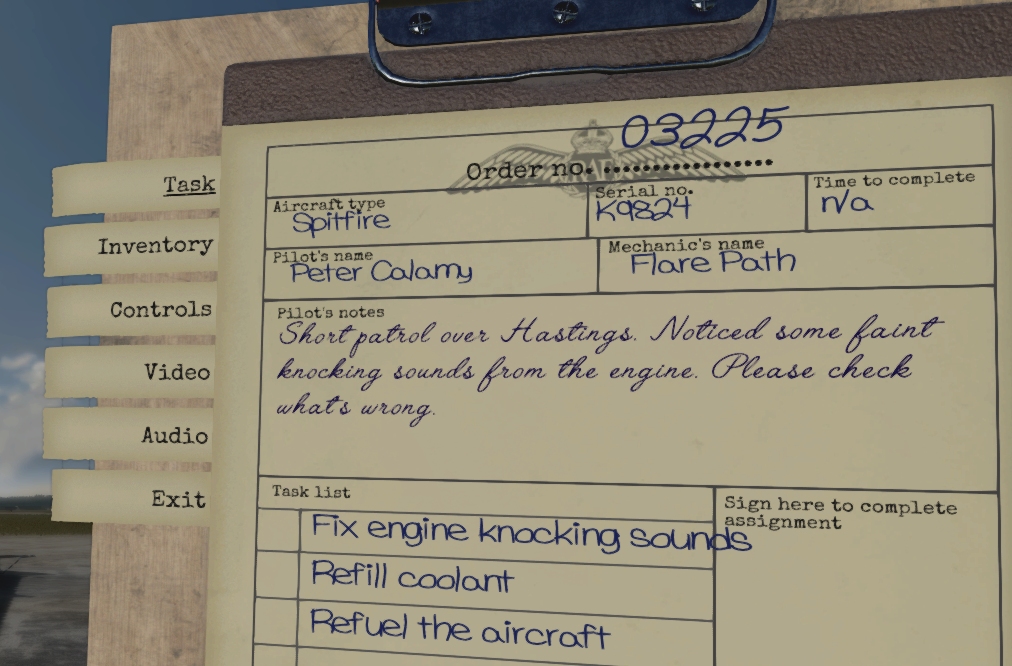 03225
Order no. ..................
Task
Inventory
Controls
Video
Audio
Exit
Aircraft type
Spitfire
Serial no.
K9824
Time to complete
n/a
Pilot's name
Peter Calamy
Mechanic's name
Flare Path
Pilot's notes
Short patrol over Hastings. Noticed some faint
knocking sounds from the engine. Please check
what's wrong.
Task list
Fix engine knocking sounds
Refill coolant
Refuel the aircraft
Sign here to complete
assignment